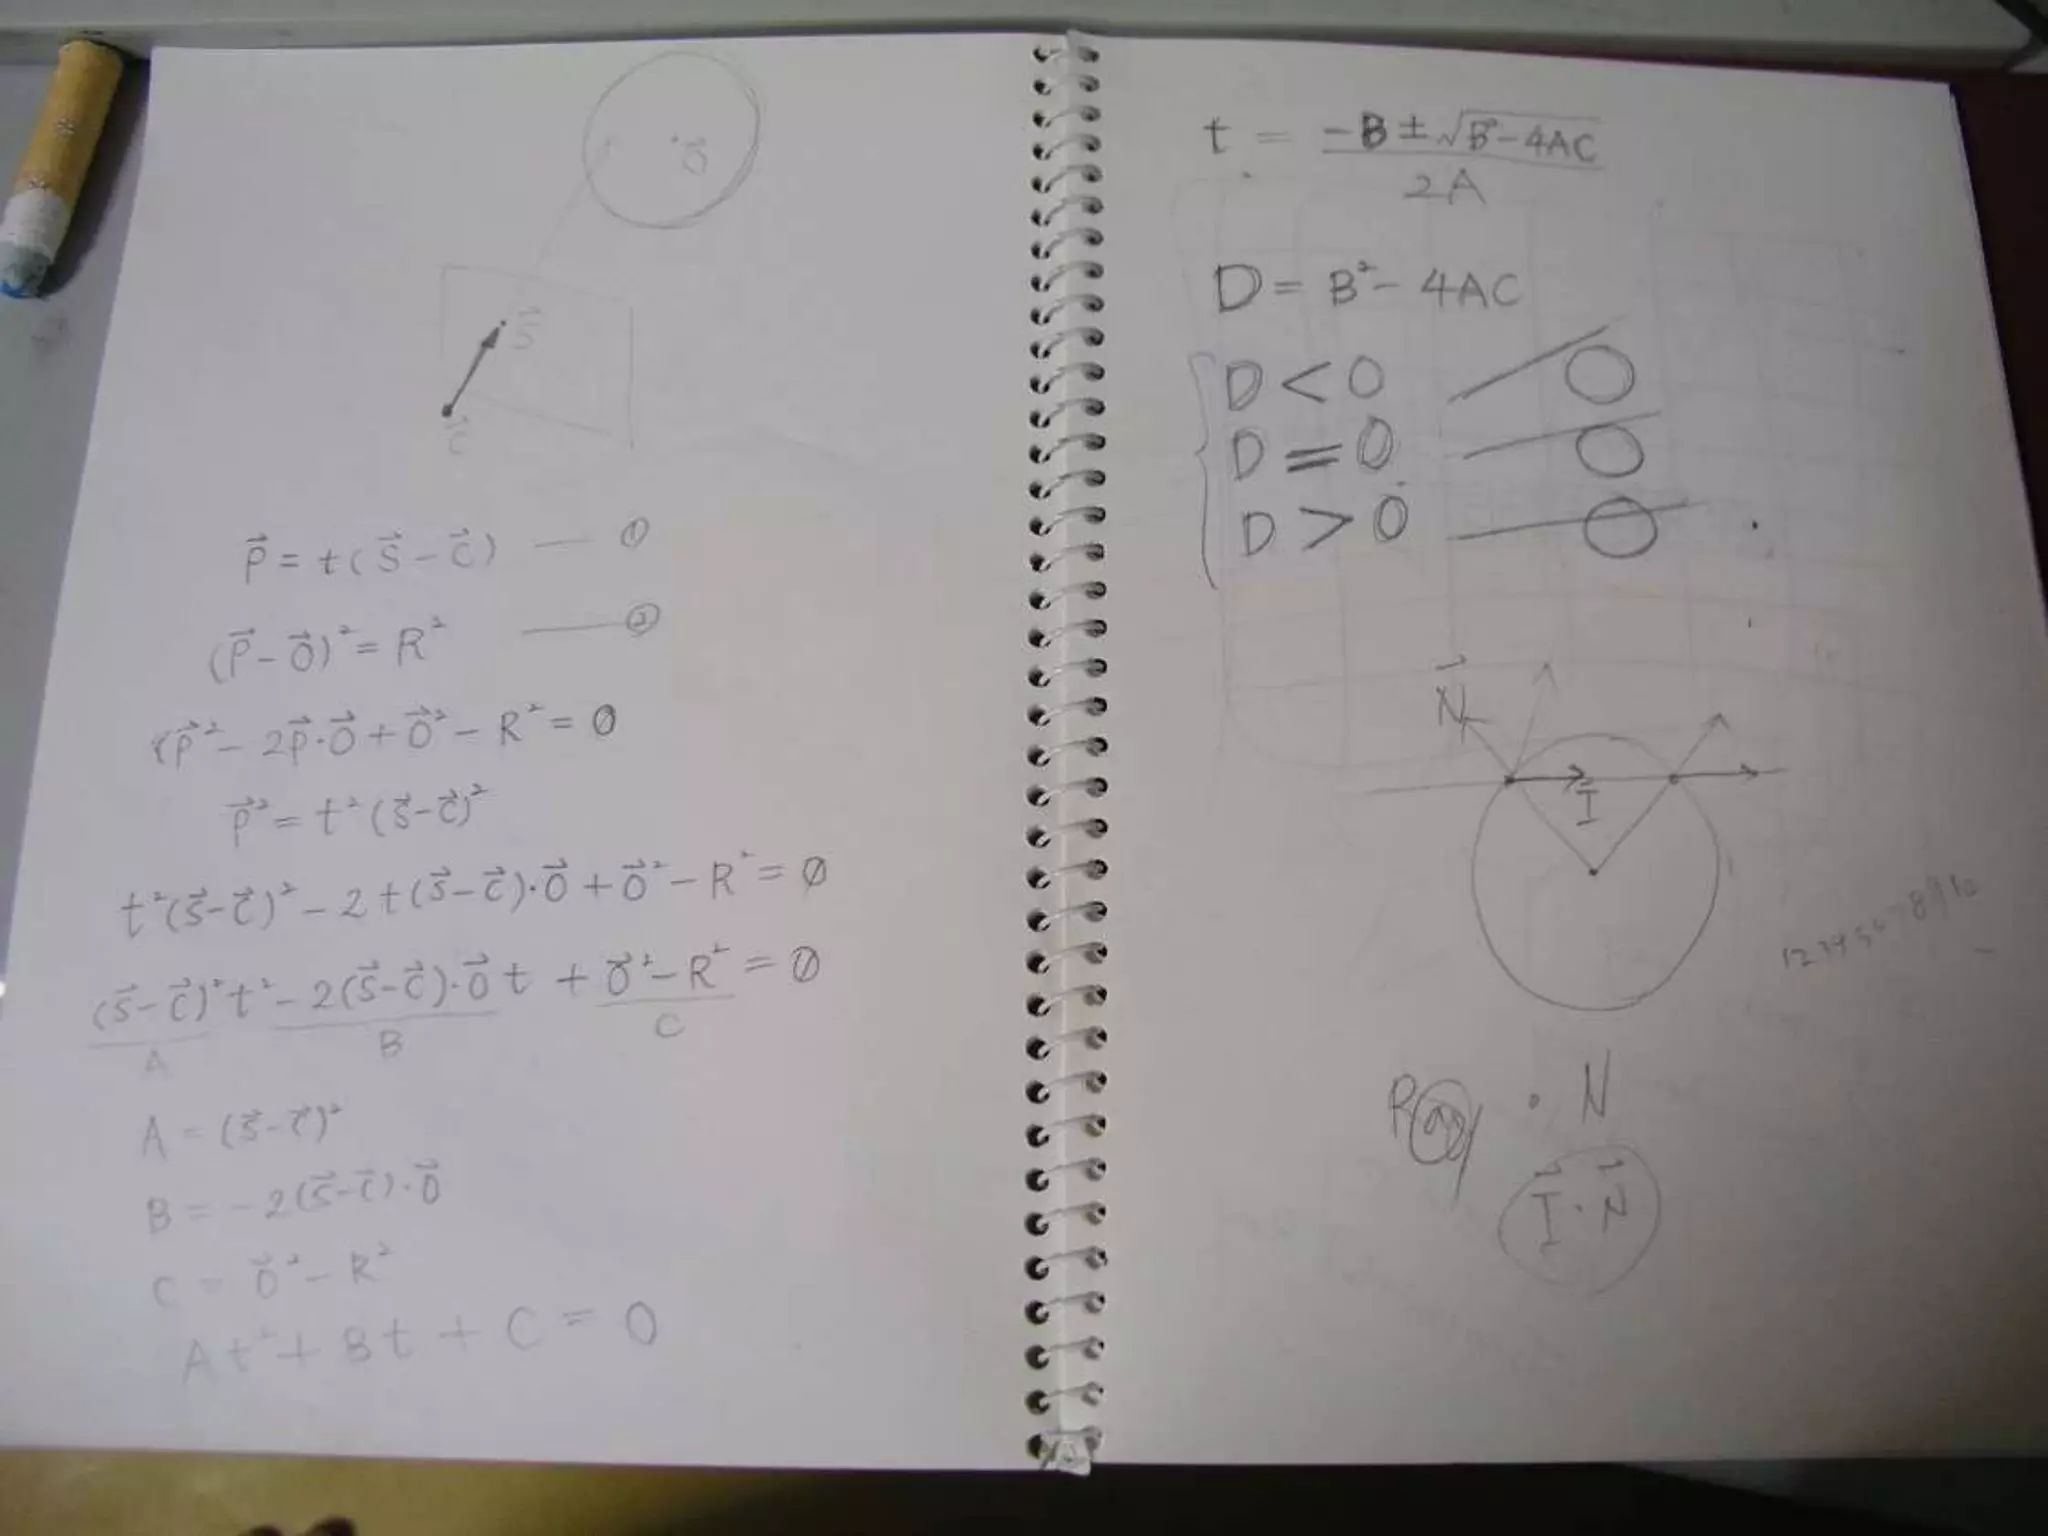 O⃗
S⃗
C⃗
P⃗ = t(S⃗ - C⃗) — ①
(P⃗ - O⃗)² = R² — ②
P⃗² - 2P⃗·O⃗ + O⃗² - R² = 0
P⃗² = t²(S⃗ - C⃗)²
t²(S⃗ - C⃗)² - 2t(S⃗ - C⃗)·O⃗ + O⃗² - R² = 0
(S⃗ - C⃗)²t² - 2(S⃗ - C⃗)·O⃗ t + O⃗² - R² = 0
A B C
A = (S⃗ - C⃗)²
B = -2(S⃗ - C⃗)·O⃗
C = O⃗² - R²
At² + Bt + C = 0
t = -B ± √B² - 4AC
2A
D = B² - 4AC
D < 0
D = 0
D > 0
N⃗
I⃗
1 2 3 4 5 6 7 8 9 10
· N
I⃗ · N⃗